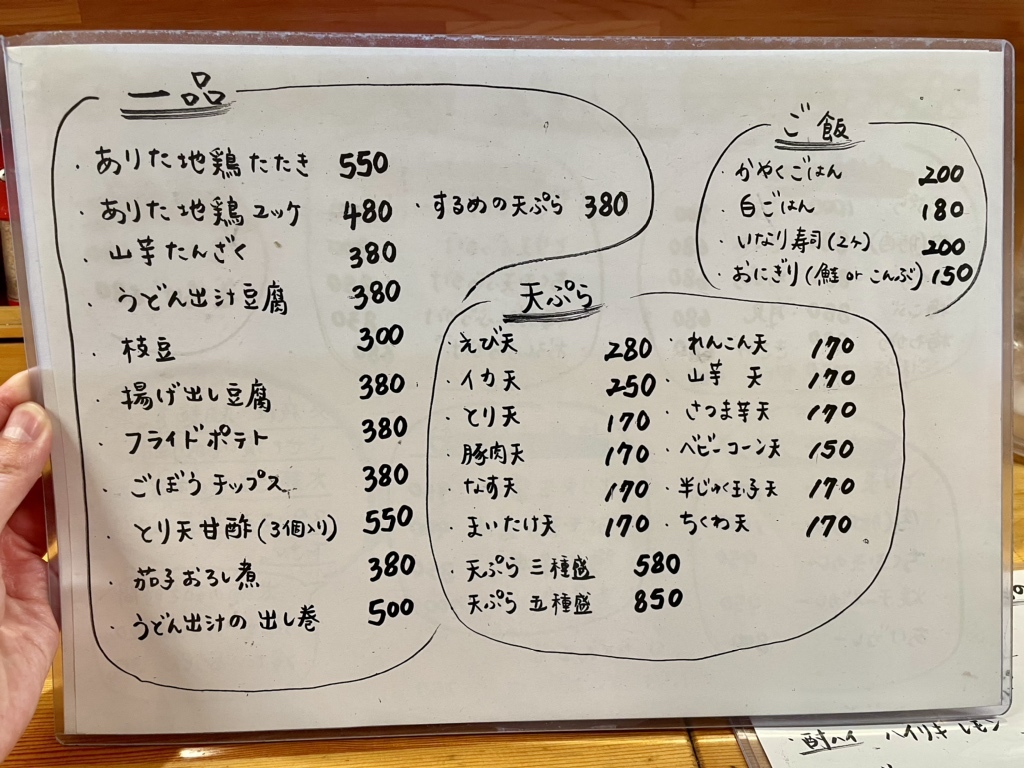 一品
・ありた地鶏たたき 550
・ありた地鶏ユッケ 480
・山芋たんざく 380
・うどん出汁豆腐 380
・枝豆 300
・揚げ出し豆腐 380
・フライドポテト 380
・ごぼうチップス 380
・とり天甘酢(3個入り) 550
・茄子おろし煮 380
・うどん出汁の出し巻 500
・するめの天ぷら 380
ご飯
・かやくごはん 200
・白ごはん 180
・いなり寿司(2ヶ) 200
・おにぎり(鮭 or こんぶ) 150
天ぷら
・えび天 280
・イカ天 250
・とり天 170
・豚肉天 170
・なす天 170
・まいたけ天 170
・れんこん天 170
・山芋 天 170
・さつま芋天 170
・ベビーコーン天 150
・半じゅく玉子天 170
・ちくわ天 170
・天ぷら 三種盛 580
・天ぷら 五種盛 850
・酎ハイ ハイリキ レモン